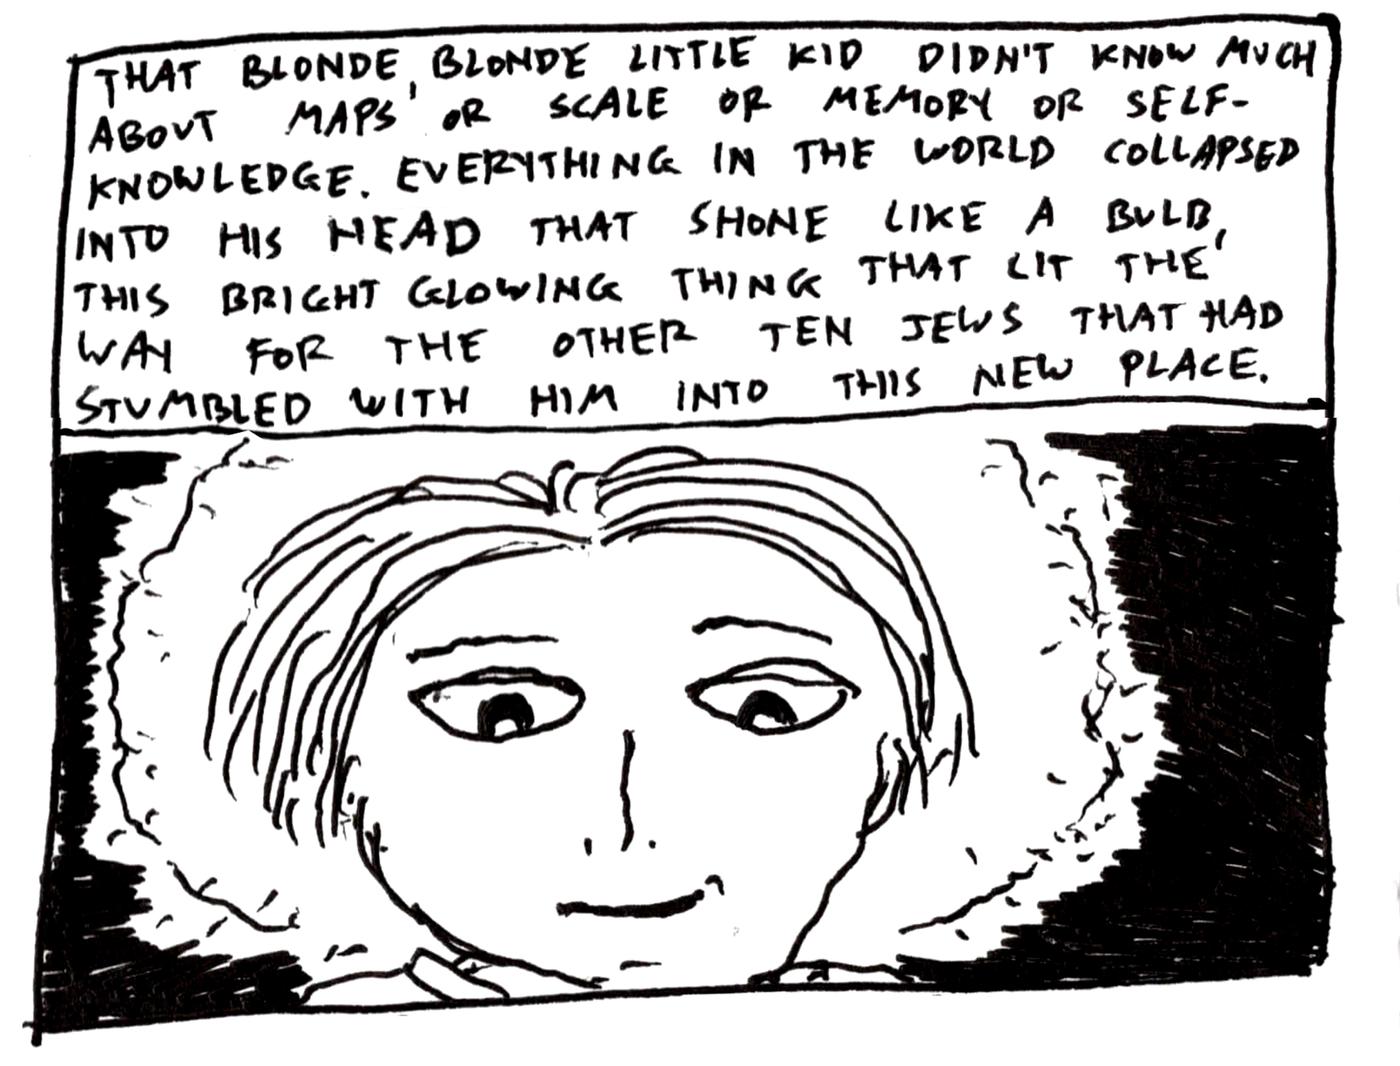 THAT BLONDE, BLONDE LITTLE KID DIDN'T KNOW MUCH
ABOUT MAPS OR SCALE OR MEMORY OR SELF-
KNOWLEDGE. EVERYTHING IN THE WORLD COLLAPSED
INTO HIS HEAD THAT SHONE LIKE A BULB,
THIS BRIGHT GLOWING THING THAT LIT THE
WAY FOR THE OTHER TEN JEWS THAT HAD
STUMBLED WITH HIM INTO THIS NEW PLACE.